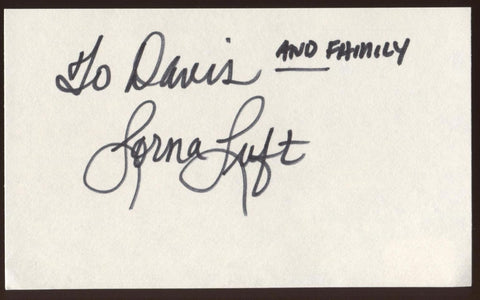 To Davis AND FAMILY
Lorna Luft